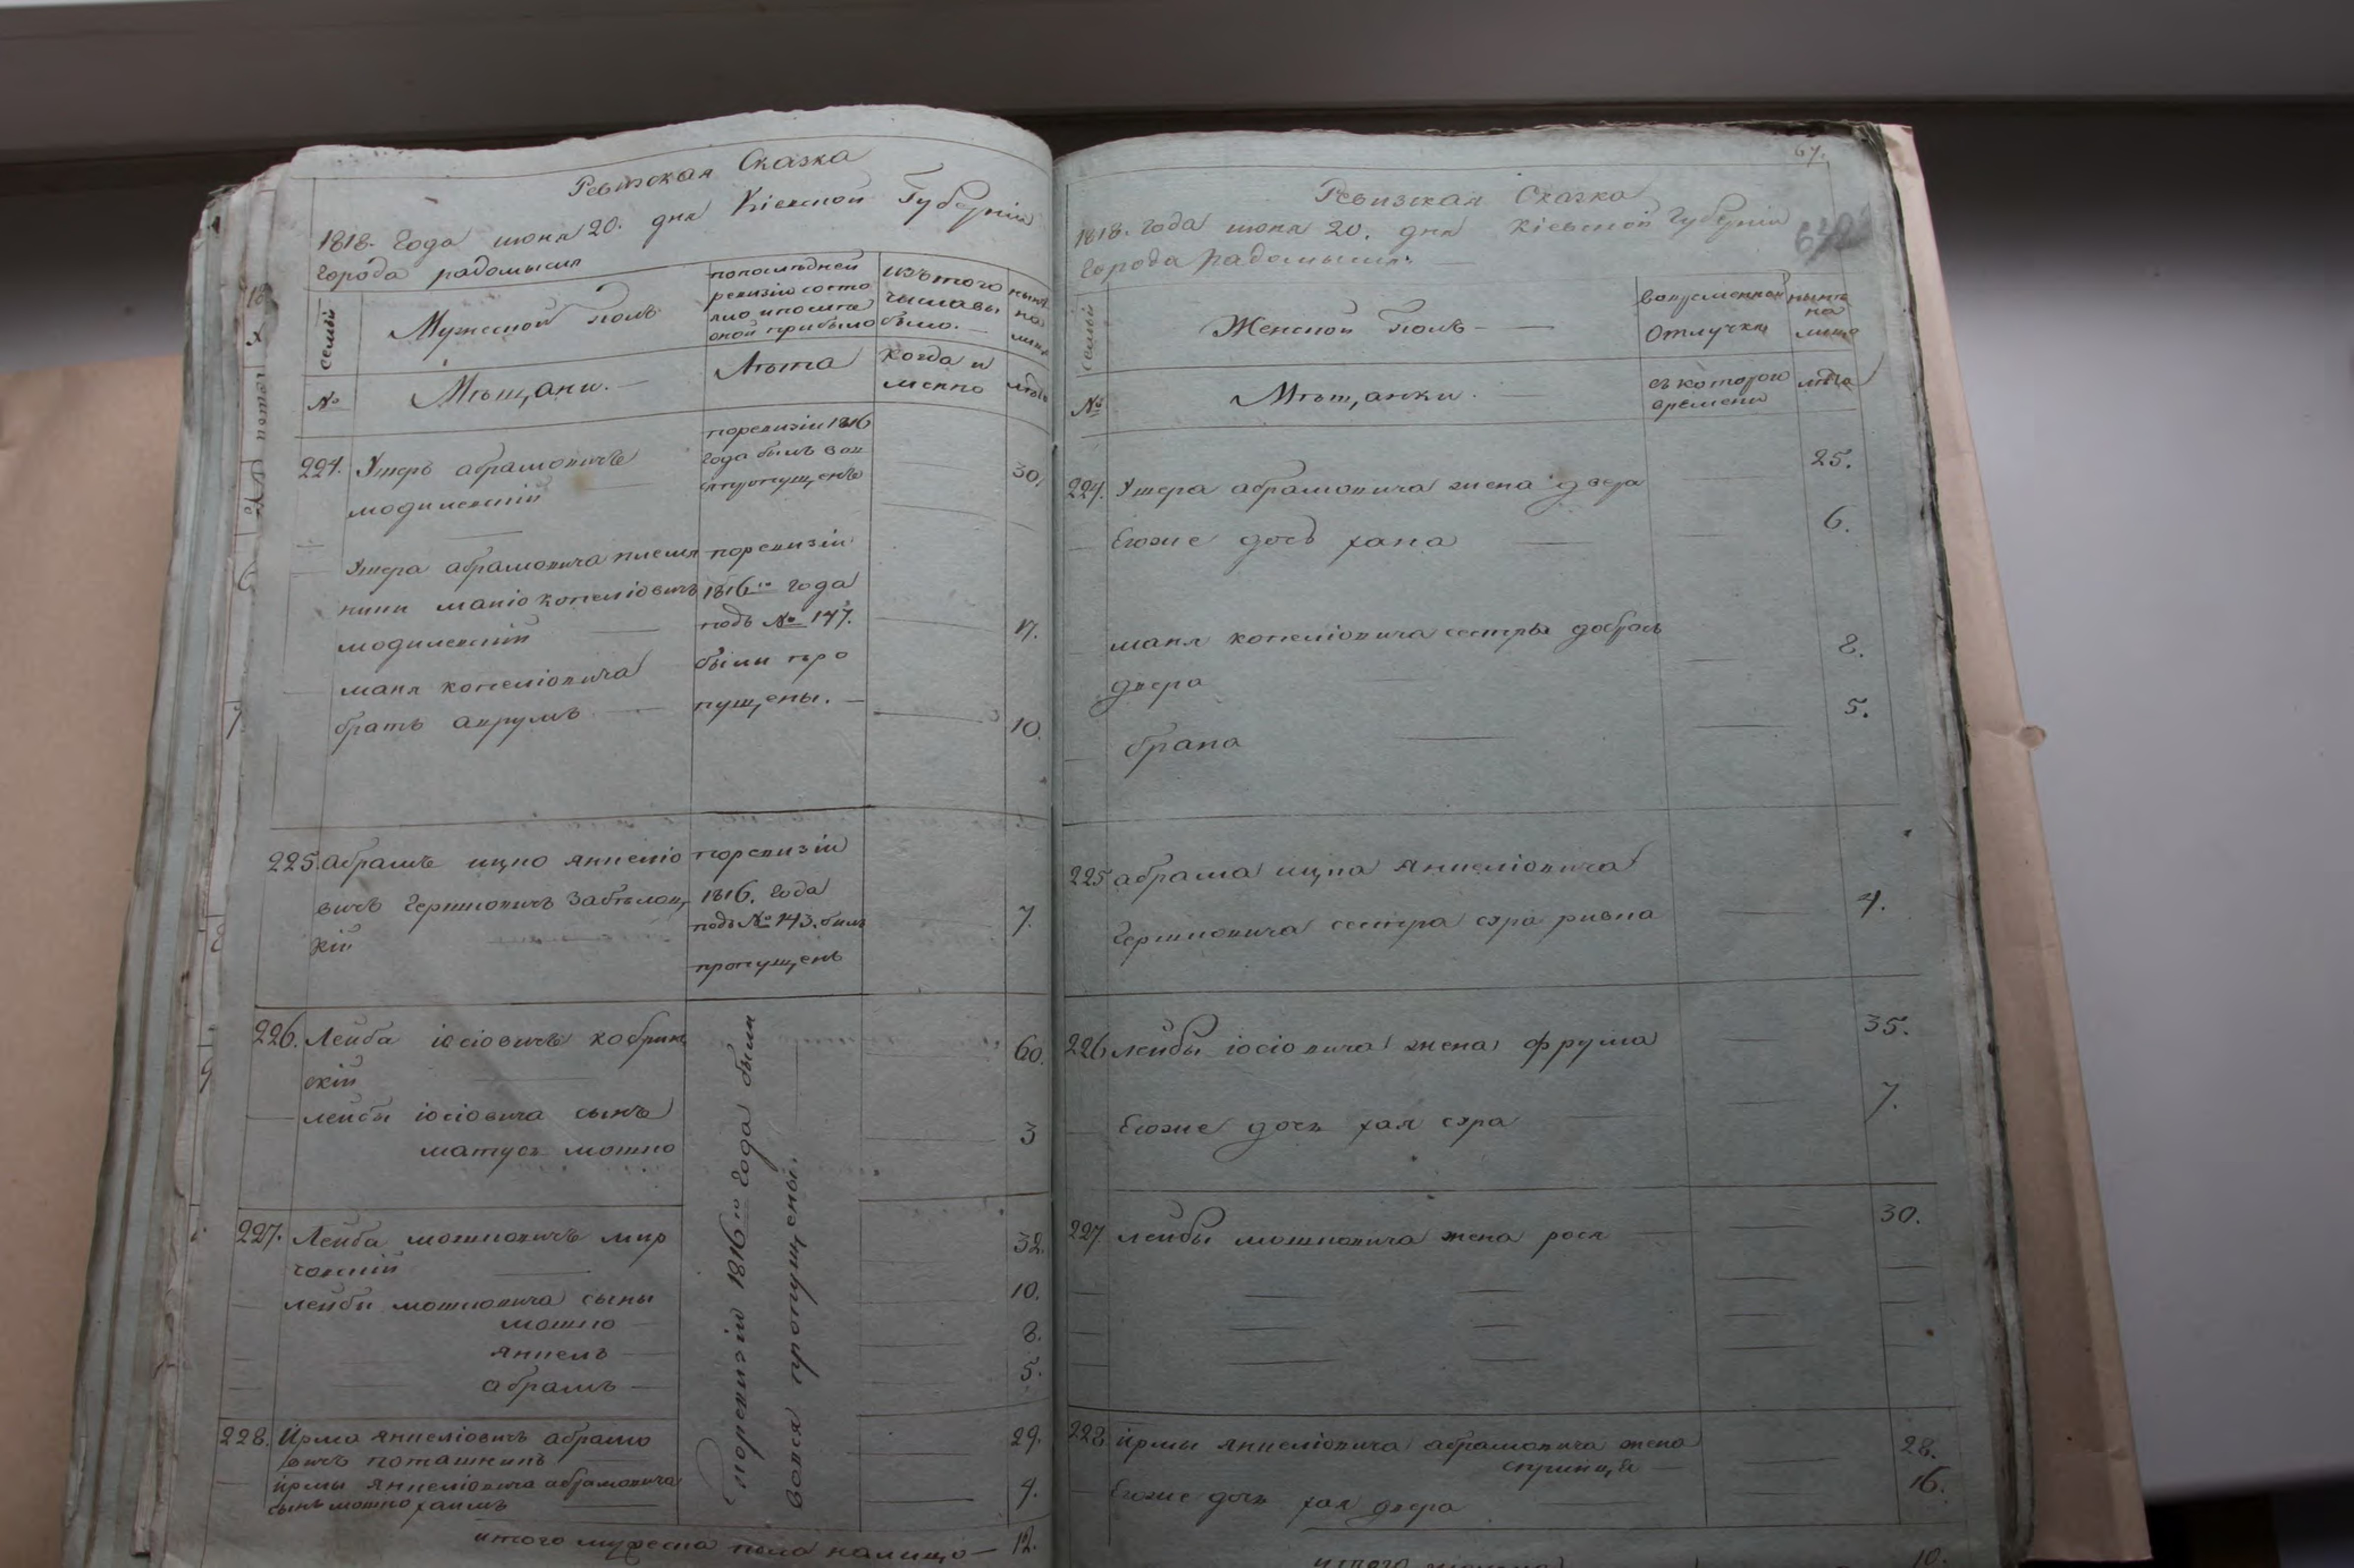 Ревизская Сказка
1818. Года июня 20. дня Кіевской Губерніи
города радомысля
семьи
Мужеской полъ
попослѣдней
ревизіи состо
яло ипосля
оной прибыло
изътого
числа вы
было.
нынѣ
на
лицо
№
Мѣщани.
Лѣта
когда и
менно
лѣта
224. Умеръ абрамовичъ
модилевскій
поревизіи 1816
года былъ вов
ся пропущенъ
30.
Умера абрамовича племя
ник маніо копеліовичъ
модилевскій
поревизіи
1816го года
подъ № 147.
17.
маня копеліовича
братъ аврумъ
были про
пущены.
10.
225. абрамъ ицко янкеліо
вичъ Гершковичъ Забѣлоц
кій
поревизіи
1816. года
подъ № 143. билъ
пропущенъ
7.
226. Лейба іосіовичъ кобрин
скій
60.
лейбы іосіовича сынъ
матусъ мошко
3
227. Лейба мошковичъ мир
говскій
32.
лейбы мошковича сыны
мошко
10.
янкель
8.
абрамъ
5.
228. Ирма янкеліовичъ абрамо
вичъ поташникъ
29.
ирмы янкеліовича абрамовича
сынъ мошко хаимъ
4.
поревизіи 1816го Года были
вовся пропущены.
итого мужеска пола налицо 12.
67.
Ревизкая Сказка
1818. года июня 20. дня Кіевской Губерніи
города радомысля
семьи
Женской полъ
вовременной
отлучки
нынѣ
на
лицо
№
Мѣщанки.
съкоторого
времени
лѣта
224. Умера абрамовича жена двера
25.
Егоже дочь хана
6.
маня копеліовича сестры добрось
двера
8.
брана
5.
225 абрама ицка янкеліовича
Гершковича сестра сура ривка
4.
226 лейбы іосіовича жена фрума
35.
Егоже дочь хая сура
7.
227 лейбы мошковича жена рося
30.
228 ирмы янкеліовича абрамовича жена
спринца
28.
Егоже дочь хая двера
16.
10.